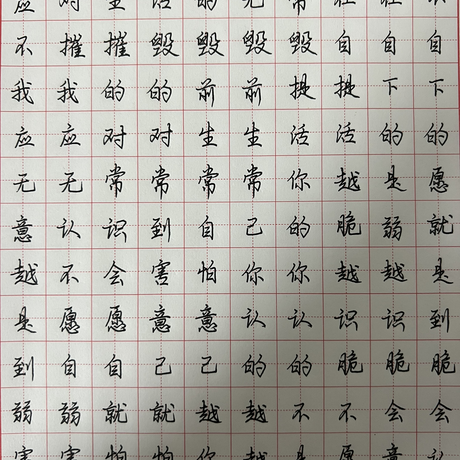 应对生活的无常
不摧摧毁毁毁毁自自自
我我的的前前提提下下
应应对对生生活活的的
无无常常常常你越是愿
意认识到自己的脆弱就
越不会害怕你你越越是
是愿愿意意认认识识到
到自自己己的的脆脆脆
弱弱就就越越不不会会
害害怕怕你越是愿意认